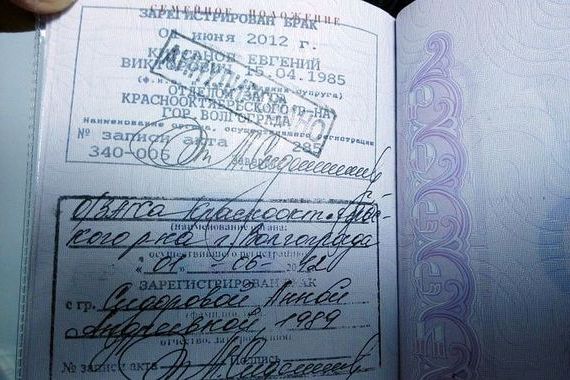 СЕМЕЙНОЕ ПОЛОЖЕНИЕ
ЗАРЕГИСТРИРОВАН БРАК
июня 2012 г.
ЕВГЕНИЙ
15.04.1985
супруга)
ОТДЕЛОМ ЗАГСА
КРАСНООКТЯБРЬСКОГО Р-НА
ГОР. ВОЛГОГРАДА
наименование органа, осуществившего регистрацию
№ записи акта 285
340-006
О/ЗАГСа Краснооктябрьс-
(наименование органа,
кого р-на г. Волгограда
осуществившего регистрацию)
"01" 06 2012
ЗАРЕГИСТРИРОВАН БРАК
с гр. Сидоровой Анной
Андреевной, 1989
отчество, дата рождения)
№ записи акта Подпись